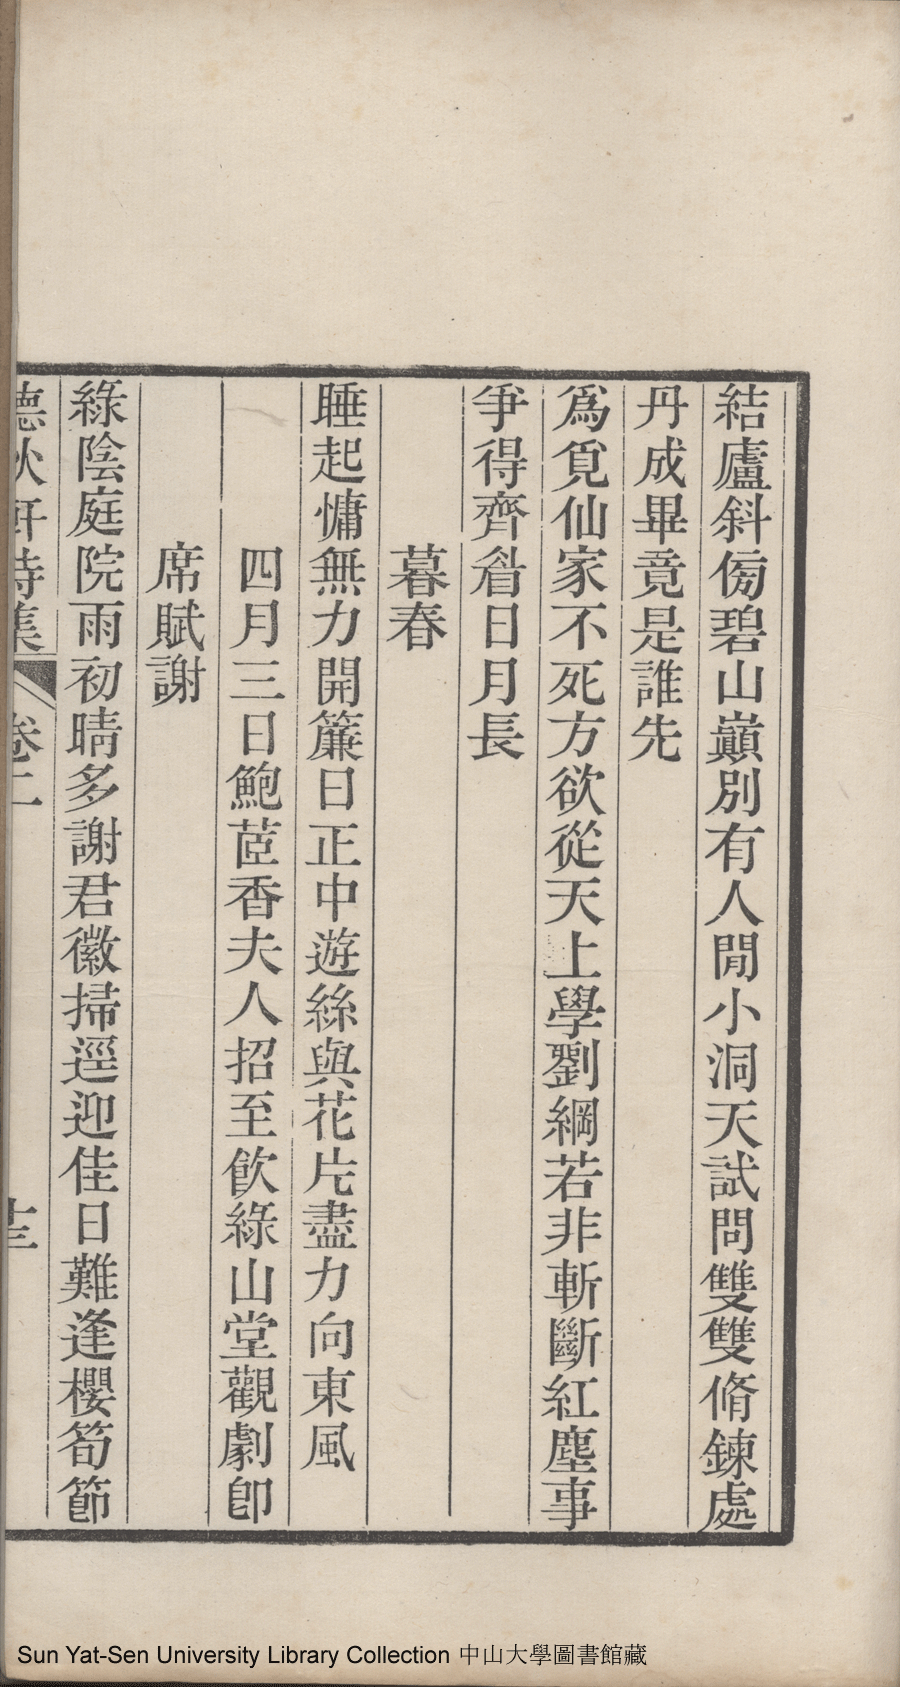 結廬斜傍碧山巔別有人閒小洞天試問雙雙脩鍊處
丹成畢竟是誰先
爲覓仙家不死方欲從天上學劉綱若非斬斷紅塵事
爭得齊眉日月長
暮春
睡起慵無力開簾日正中遊絲與花片盡力向東風
四月三日鮑茝香夫人招至飲綠山堂觀劇卽
席賦謝
綠陰庭院雨初晴多謝君徽掃逕迎佳日難逢櫻筍節
德秋軒詩集 卷二 十三
Sun Yat-Sen University Library Collection 中山大學圖書館藏